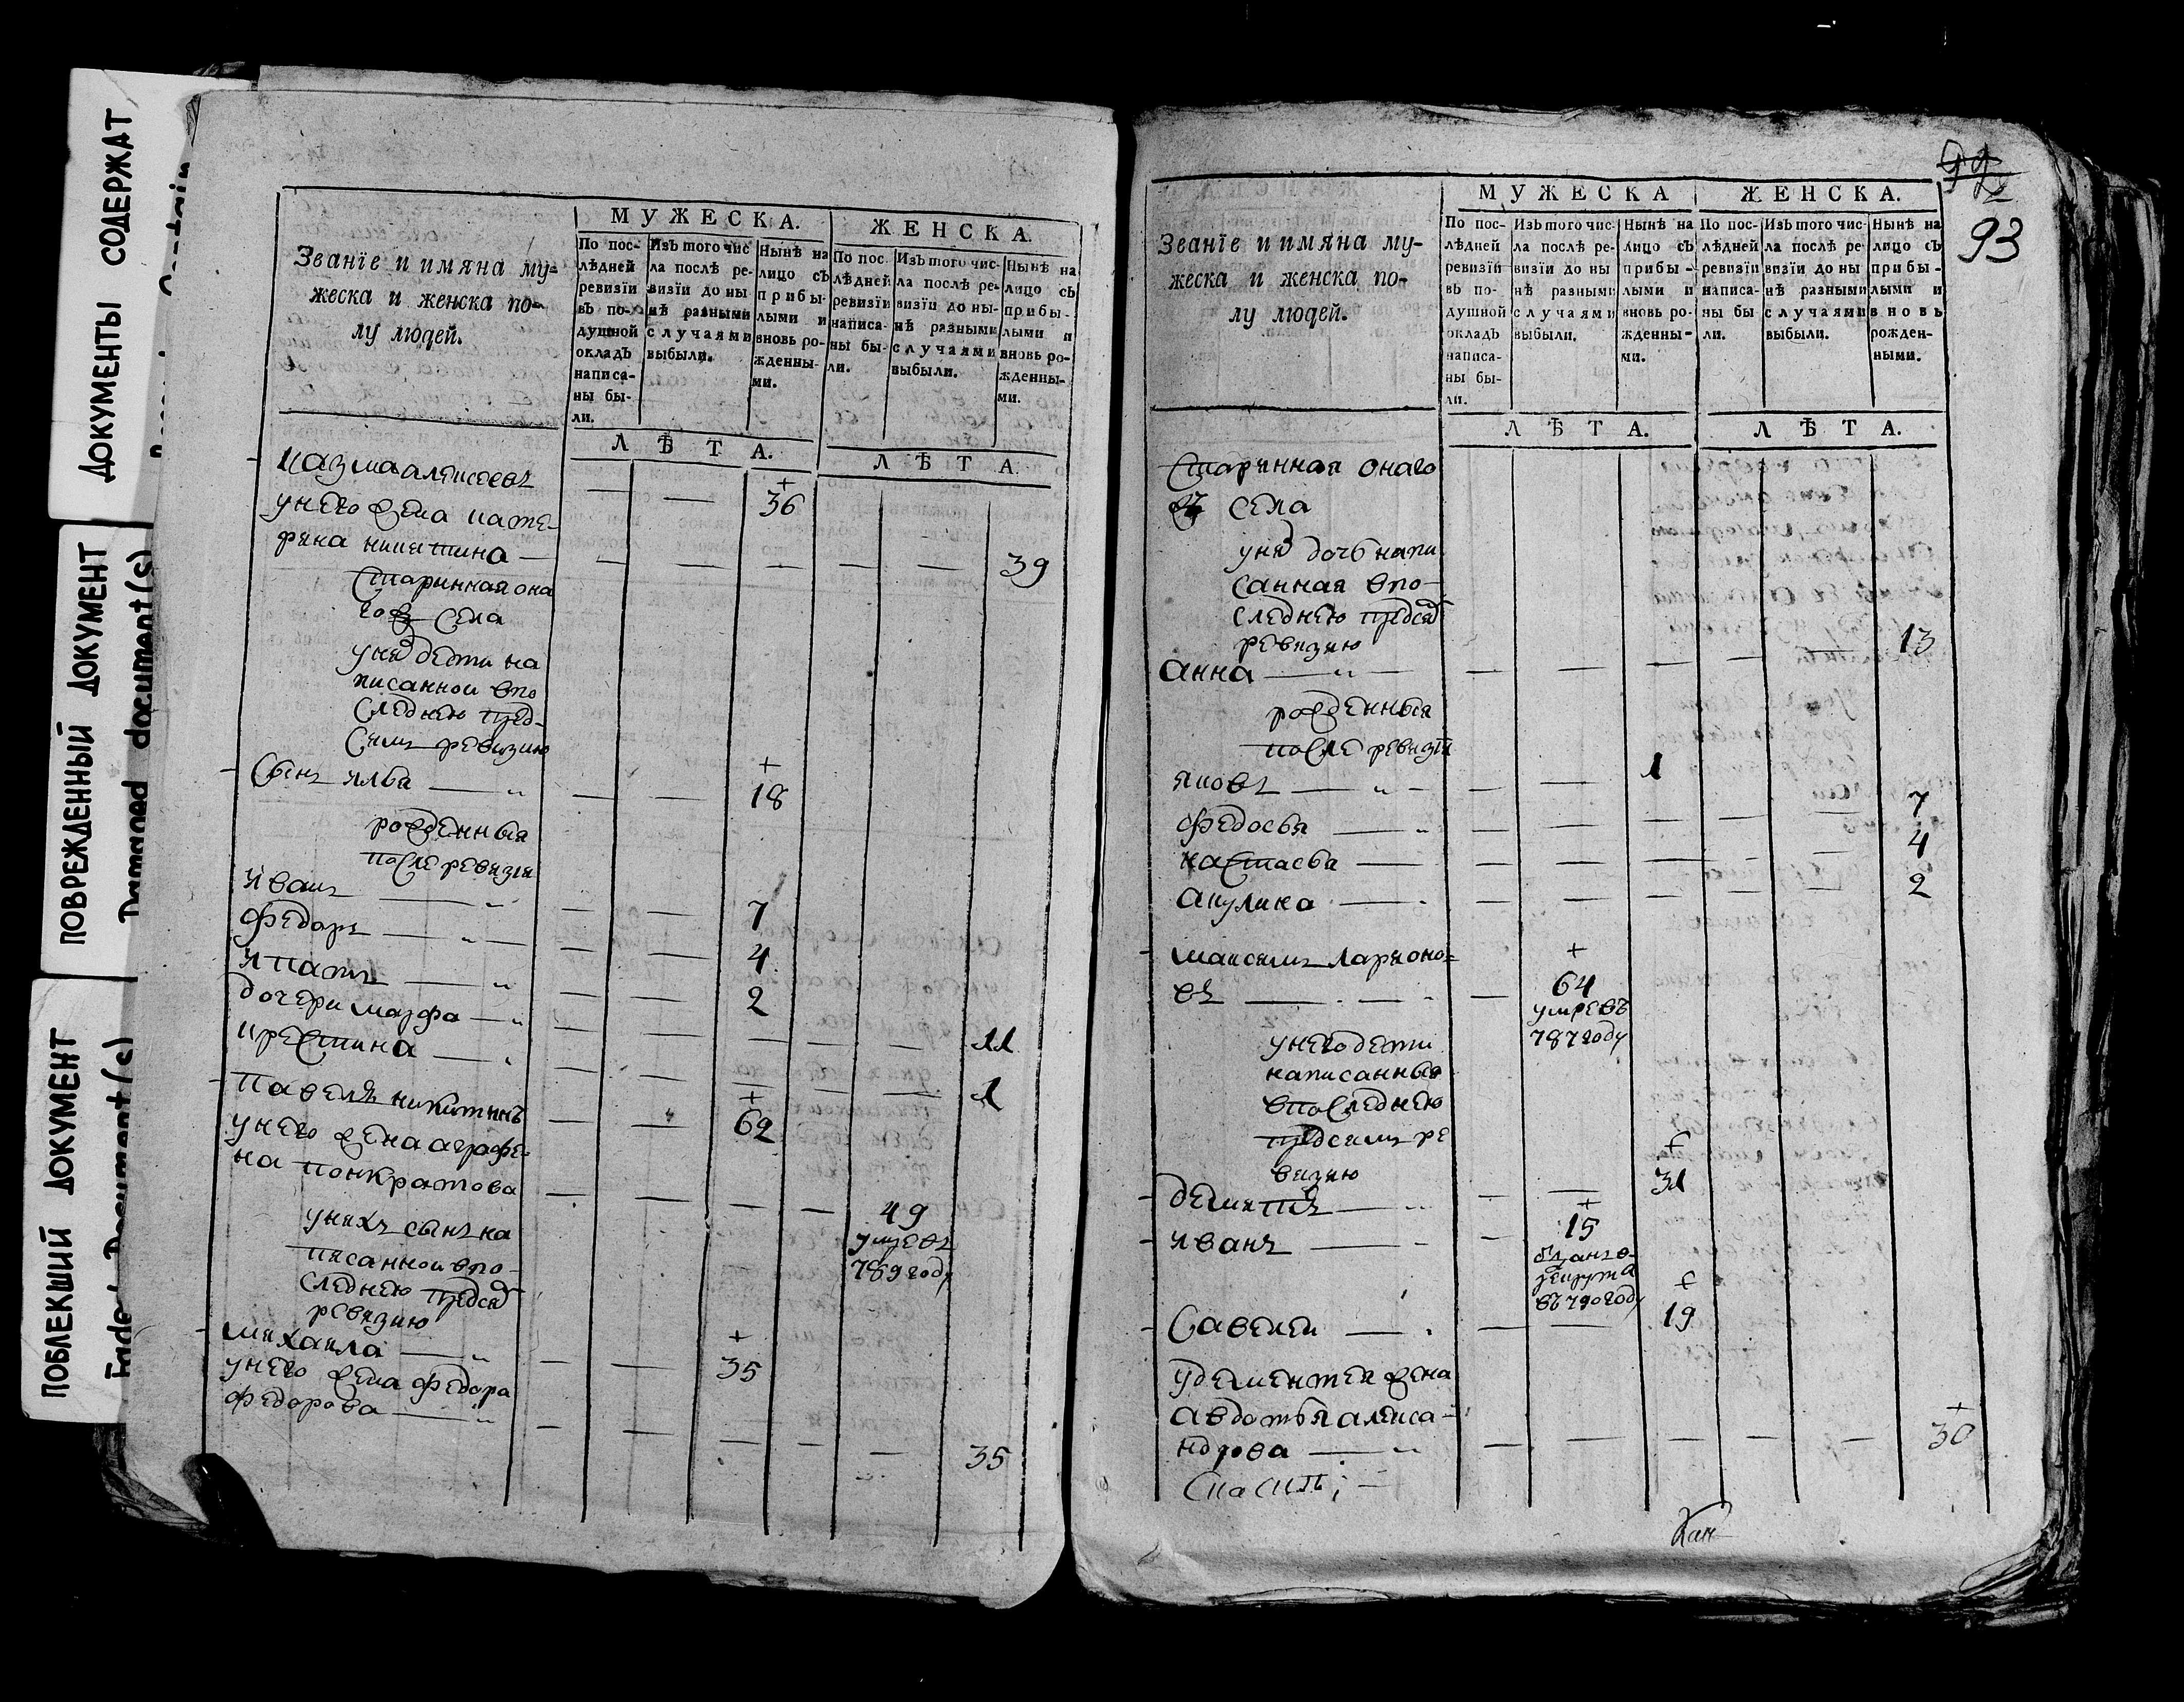 ДОКУМЕНТЫ СОДЕРЖАТ
ПОВРЕЖДЕННЫЙ ДОКУМЕНТ
Damaged document(s)
ПОБЛЕКШИЙ ДОКУМЕНТ
Faded Document(s)
Званїе и имяна му-
жеска и женска по-
лу людей.
МУЖЕСКА.
ЖЕНСКА.
По пос-
лѣдней
ревизїи
въ по-
душной
окладъ
написа-
ны бы-
ли.
Изъ того чис
ла послѣ ре-
визїи до ны
нѣ разными
случаями
выбыли.
Нынѣ на
лицо съ
прибы-
лыми и
вновь ро-
жденны-
ми.
По пос-
лѣдней
ревизїи
написа-
ны бы-
ли.
Изъ того чис-
ла послѣ ре-
визїи до ны-
нѣ разными
случаями
выбыли.
Нынѣ на
лицо съ
прибы-
лыми и
вновь ро-
жденны-
ми.
ЛѢТА.
ЛѢТА.
Казма алексеевъ
36
у него жена кате-
рена никитина
39
старинная она
гож села
у них дети на
писанной впо
следнею пред
сим ревизию
сынъ илья
18
рожденныя
после ревизіи
иванъ
7
федоръ
4
ипатъ
2
дочери марфа
11
крестина
1
павелъ никитинъ
62
у него жена аграфе-
на понкратова
49
умре въ
789 году
у нихъ сынъ на
писанной впо-
следнею предсим
ревизию
михаила
35
у него жена федора
федорова
35
92
93
Званїе и имяна му-
жеска и женска по-
лу людей.
МУЖЕСКА
ЖЕНСКА.
По пос-
лѣдней
ревизїи
въ по-
душной
окладъ
написа-
ны бы-
ли.
Изъ того чис-
ла послѣ ре-
визїи до ны
нѣ разными
случаями
выбыли.
Нынѣ на
лицо съ
прибы-
лыми и
вновь ро-
жденны-
ми.
По пос-
лѣдней
ревизїи
написа-
ны бы-
ли.
Изъ того чис-
ла послѣ ре-
визїи до ны
нѣ разными
случаями
выбыли.
Нынѣ на
лицо съ
прибы-
лыми и
вновь
рожден-
ными.
ЛѢТА.
ЛѢТА.
старинная онаго
ж села
у них дочь напи
санная впо-
следнею предсим
ревизию
анна
13
рожденныя
после ревизіи
яковъ
1
федосья
7
настасья
4
акулина
2
максимъ ларионо-
въ
64
умре въ
787 году
у него дети
написанныя
впоследнею
предсимъ ре
визию
дементий
31
иванъ
15
отданъ в
рекрута
въ 790 году
савелей
19
у дементея жена
авдотья алекса-
ндрова
30